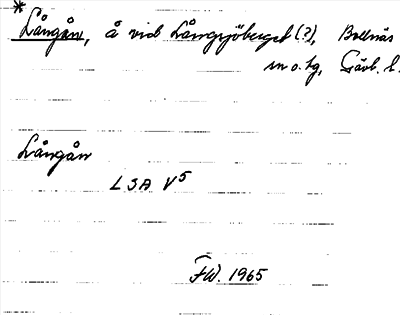 *
Långån, å vid Långsjöberget (?), Bollnäs
sn o. tg, Gävl. l.
Långån
LSA V5
FW. 1965